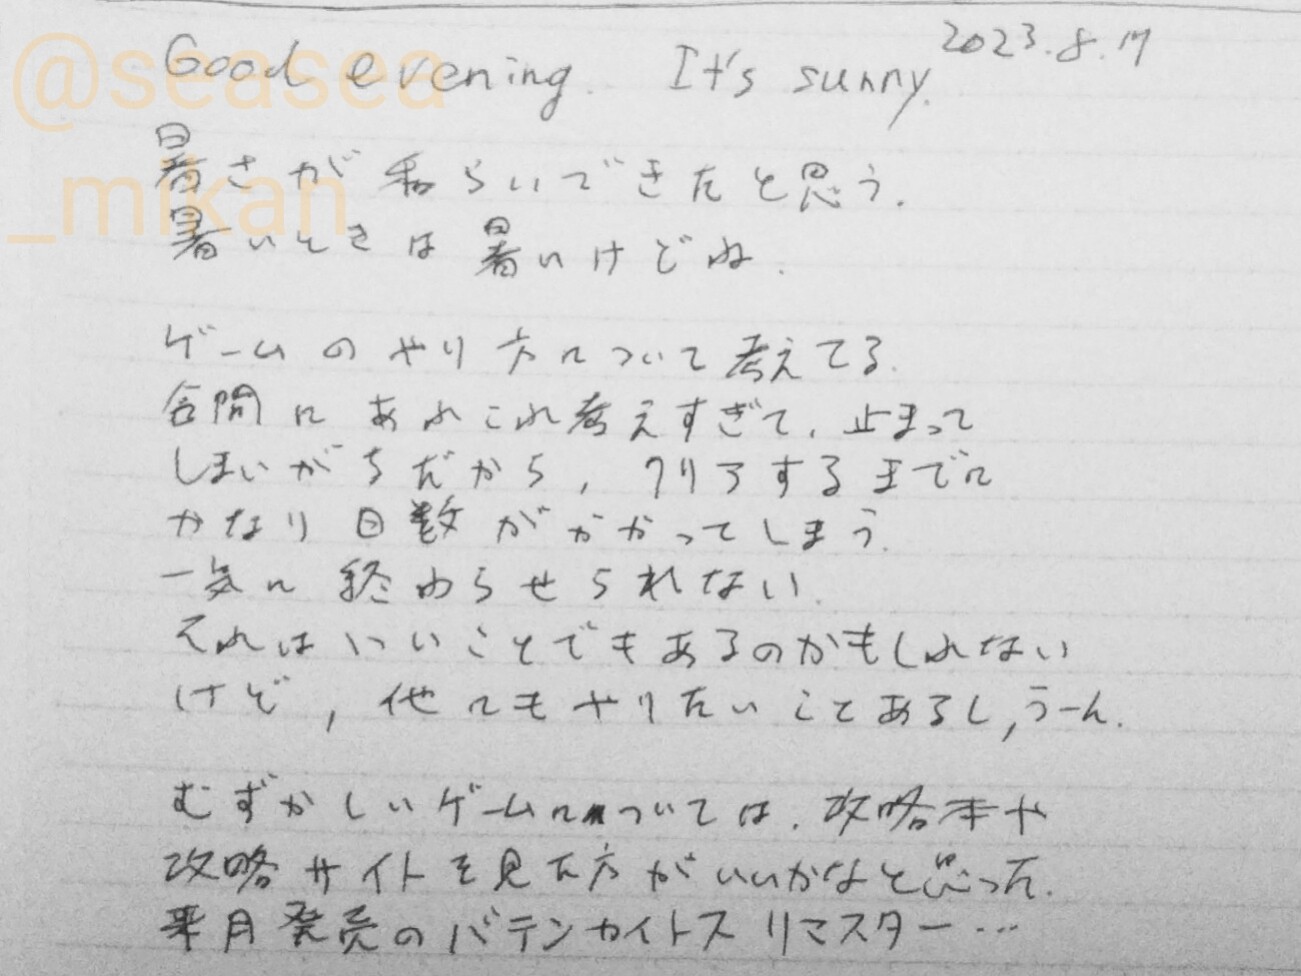 2023.8.17
Good evening. It's sunny.
暑さが和らいできたと思う.
暑いときは暑いけどね.
ゲームのやり方について考えてる.
合間にあれこれ考えすぎて、止まって
しまいがちだから、クリアするまでに
かなり日数がかかってしまう.
一気に終わらせられない.
それはいいことでもあるのかもしれない
けど、他にもやりたいことあるし、うーん.
むずかしいゲームについては、攻略本や
攻略サイトを見た方がいいかなと思った.
来月発売のバテンカイトス リマスター…
@seasea
_mikan